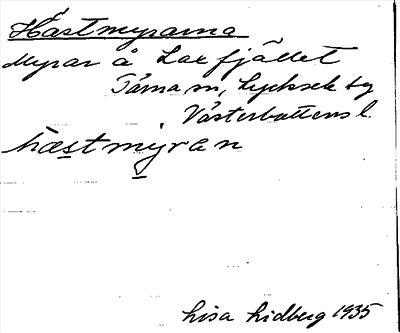 Hästmyrarna
Myrar å Laxfjället
Tärna sn, Lycksele tg
Västerbottens l.
hæstmyran
Lisa Lidberg 1935